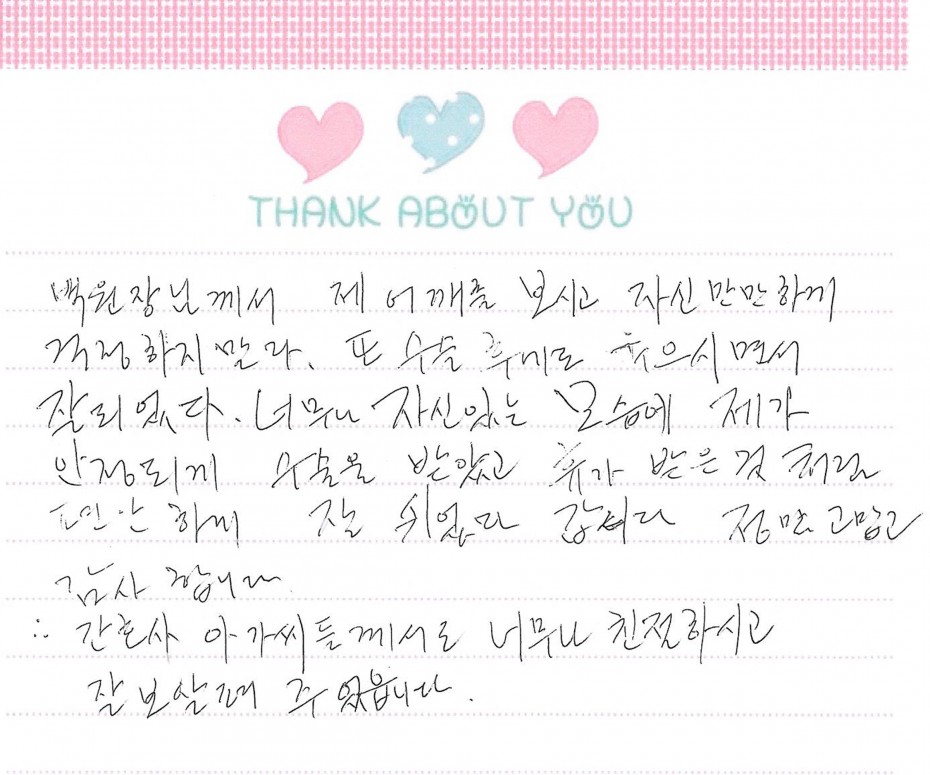 THANK ABOUT YOU
백원장님께서 제 어깨를 보시고 자신만만하게
걱정하지말라. 또 수술 후에도 웃으시면서
잘되었다. 너무나 자신있는 모습에 제가
안정되게 수술을 받았고 휴가 받은것 처럼
편안하게 잘 쉬었다 갑니다 정말 고맙고
감사 합니다
∴ 간호사 아가씨들께서도 너무나 친절하시고
잘 보살펴 주었습니다.